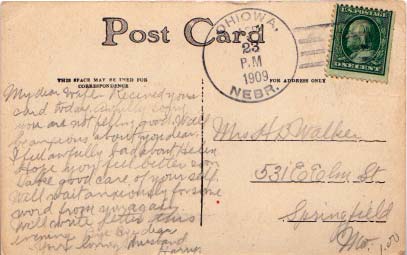 Post Card
THIS SPACE MAY BE USED FOR
CORRESPONDENCE
FOR ADDRESS ONLY
OHIOWA,
23
P.M
1909
NEBR.
U.S. POSTAGE
ONE CENT
My dear Wife Received your
card today awfully sorry
you are not felling good. Will
be anxious about you dear.
I feel awfully bad about
Hope you feel better soon
Take good care of yourself.
Will wait anxiously for some
word from you again
Will write letter this
evening Bye Bye dear
Your loving husband
Harry.
Mrs H B Walker
531 E Elm St
Springfield
Mo.
1.00